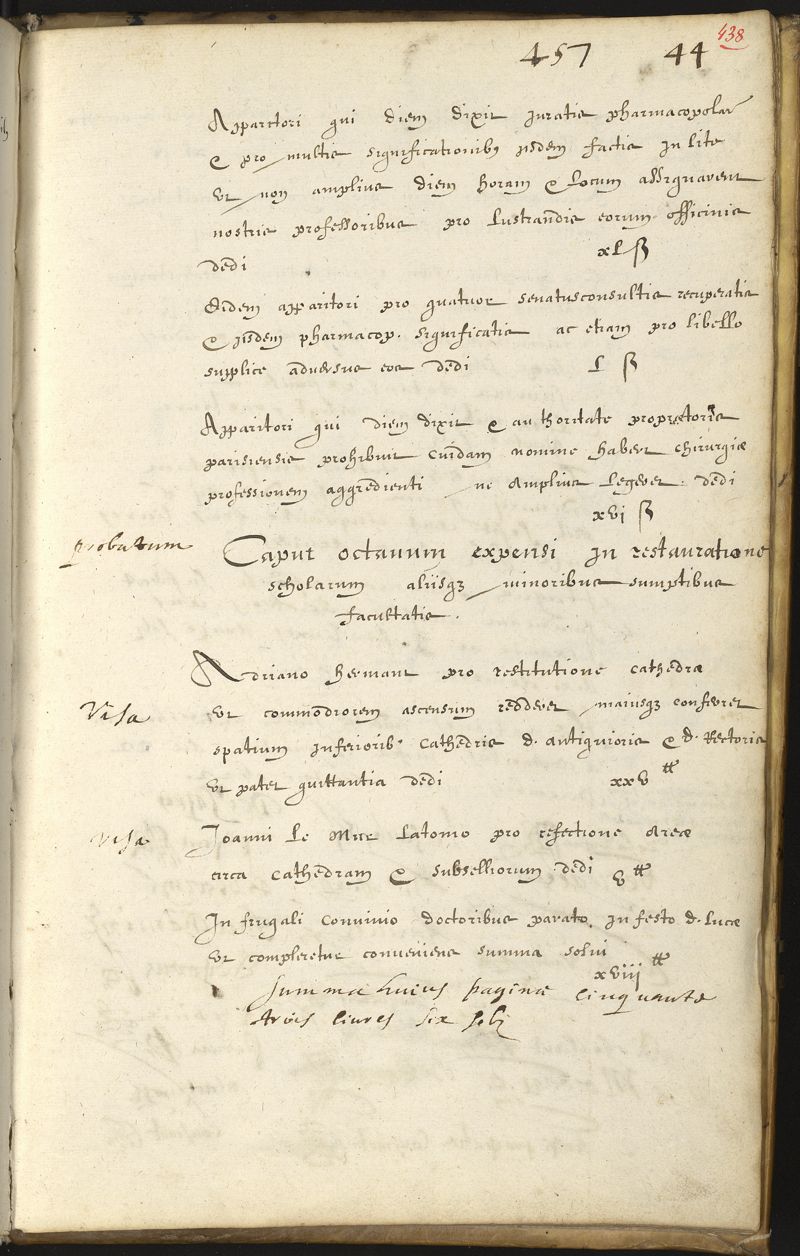 438
457 44
Apparitori qui diem dixit juratis pharmacopolar
& pro multis significationib9 jisdem factis in lite
ut non amplius diem horam & locum assignarent
nostris professoribus pro lustrandis eorum officinis
dedi xl ß
Eidem apparitori pro quatuor senatusconsultis recuperatis
& jisdem pharmacop. significatis ac etiam pro libello
supplice adversus eos dedi l ß
Apparitori qui diem dixit & authoritate propretoris
parisiensis prohibuit cuidam nomine habert chirurgiæ
professionem aggredienti ne amplius legeret. dedi
xvj ß
probatum Caput octauum expensi in restauratione
scholarum aliisq3 minoribus sumptibus
facultatis.
Adriano hermant pro restitutione cathedræ
Visa ut commodiorem ascensum redderet maiusq3 conferret
spatium inferiorib9 cathedris d. antiquioris & d. Rectoris
ut patet quittantia dedi xxv ₶
visa Joanni le Mire latomo pro refectione areæ
circa cathedram & subselliorum. dedi v ₶
In frugali convivio doctoribus parato in festo d. lucæ
ut compleretur conveniens summa solui
xviij ₶
summa huius paginæ cinquante
trois livres six solz